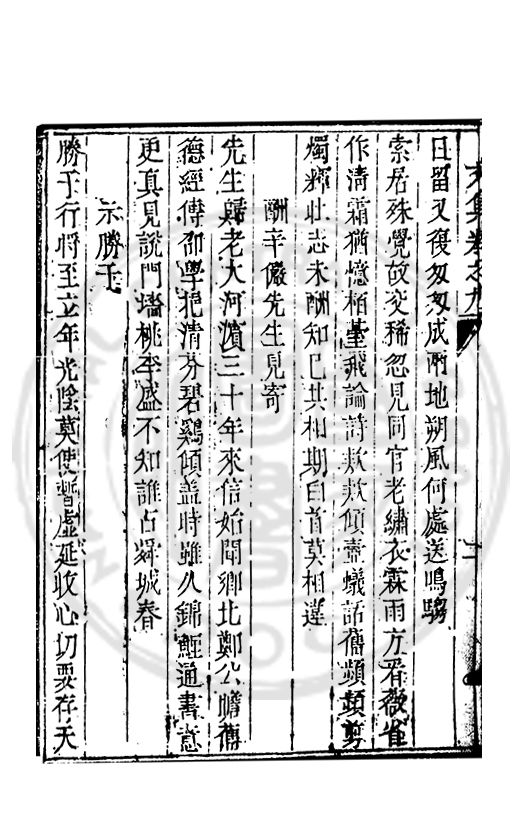 文集卷之九
日留又復匆匆成兩地朔風何處送鳴騶
索居殊覺故交稀忽見同官老繡衣霖雨方看薇省
作清霜猶憶柏臺飛論詩款款傾壺蟻話舊頻頻剪
燭輝壯志未酬知已共相期白首莫相違
酬辛儼先生見寄
先生歸老大河濱三十年來信始聞鄉北鄭公瞻舊
德經傳邵學挹清芬碧鷄傾蓋時雖久錦鯉通書意
更真見說門墻桃李盛不知誰占舜城春
示勝子
勝子行將至立年光陰莫使暫虛延收心切要存天